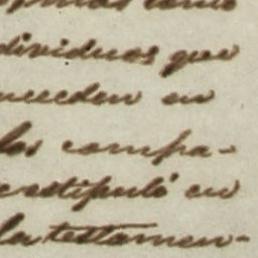 dividuos que
suceden en
los compa-
estipuló en
la testamen-